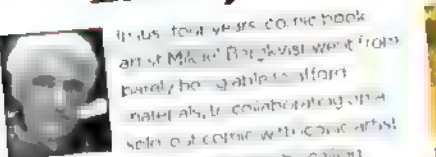 in just four years comic book
artist Mikael Bergkvist went from
barely being able to afford
materials, to collaborating on a
sold out comic with comic artist